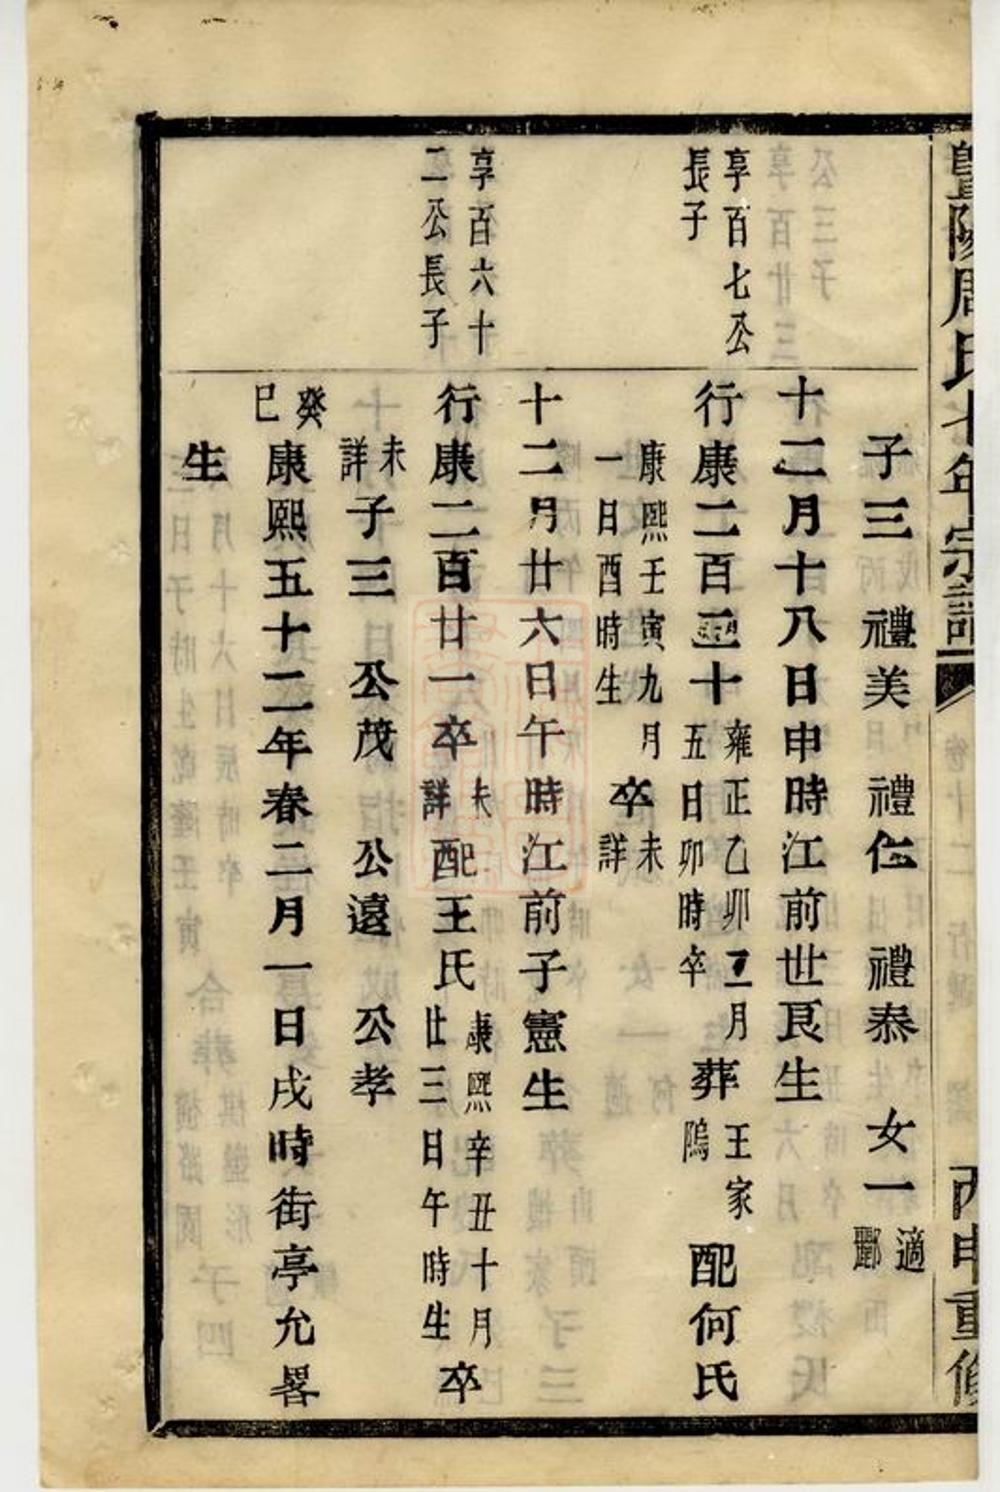 暨陽周氏七年宗譜 丙申重修
子三 禮美 禮仁 禮泰 女一 適
酈
十二月十八日申時江前世良生
享百七公
長子
行康二百三十 雍正乙卯二月
五日卯時卒 葬 王家
塢 配何氏
康熙壬寅九月
一日酉時生 卒 未
詳
十二月廿六日午時江前子憲生
享百六十
二公長子
行康二百廿一卒 未
詳 配王氏 康熙辛丑十月
廿三日午時生 卒
未
詳 子三 公茂 公遠 公孝
癸
巳 康熙五十二年春二月一日戌時街亭允畧
生